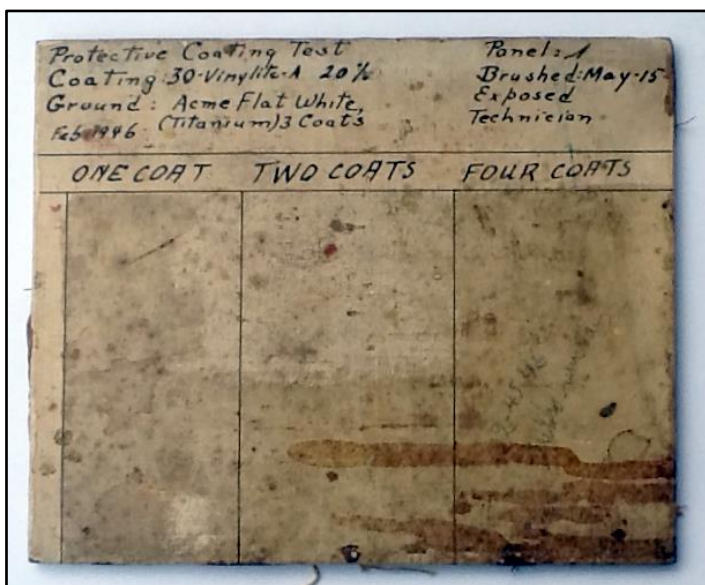 Protective Coating Test
Coating: 30-Vinylite-A 20%
Ground: Acme Flat White,
Feb 1946. (Titanium) 3 Coats
Panel: 1
Brushed: May-15
Exposed
Technician
ONE COAT TWO COATS FOUR COATS